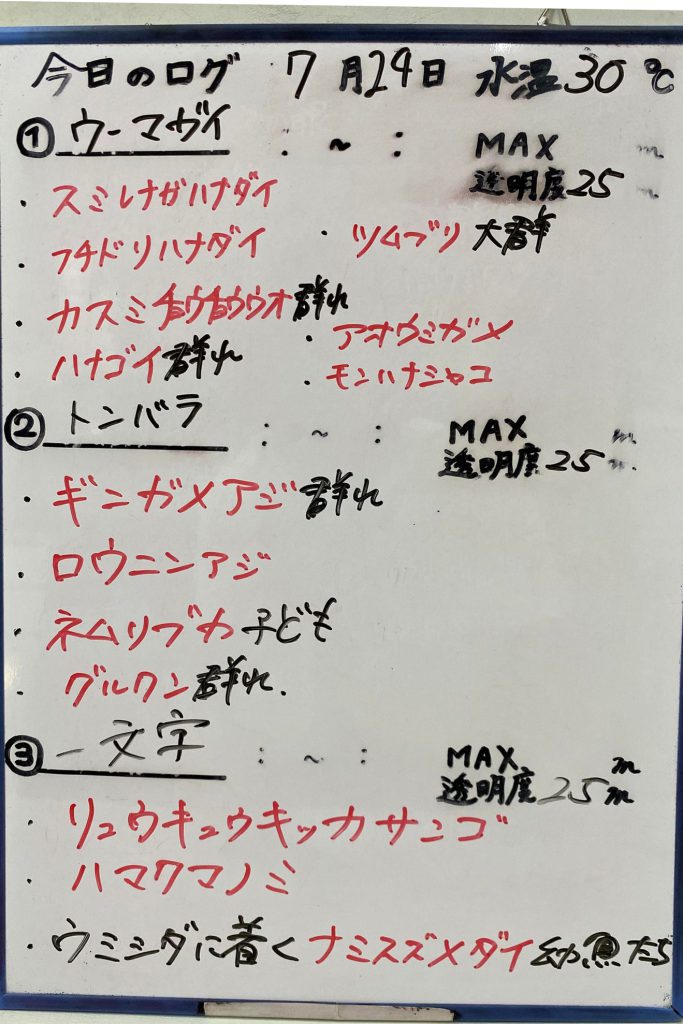 今日のログ 7月24日 水温30℃
① ウーマガイ : ~ : MAX m
透明度25 m
・スミレナガハナダイ
・フチドリハナダイ ・ツムブリ大群
・カスミチョウチョウウオ群れ
・アオウミガメ
・ハナゴイ群れ
・モンハナシャコ
② トンバラ : ~ : MAX m
透明度25 m
・ギンガメアジ群れ
・ロウニンアジ
・ネムリブカ子ども
・グルクン群れ.
③ 一文字 : ~ : MAX m
透明度25 m
・リュウキュウキッカサンゴ
・ハマクマノミ
・ウミシダに着くナミスズメダイ幼魚たち